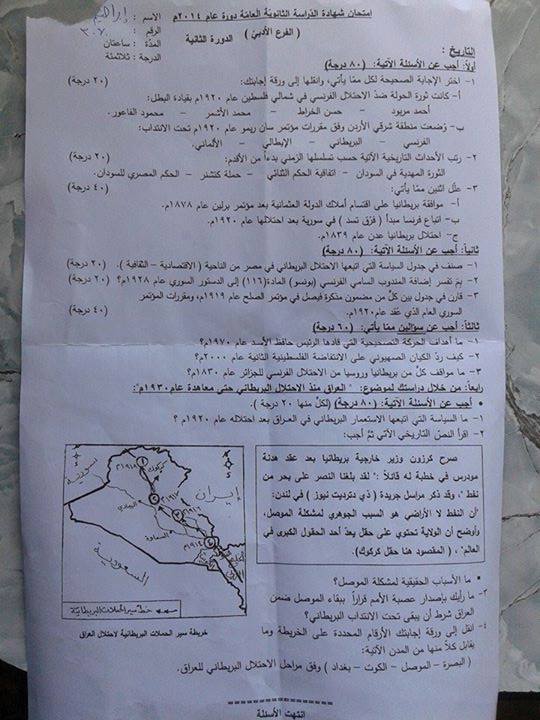 امتحان شهادة الدراسة الثانوية العامة دورة عام ٢٠١٤م
الاسم : ابراهيم
(الفرع الأدبي) الدورة الثانية
الرقم : ٣٠٧
المدة : ساعتان
الدرجة : ثلاثمئة
التاريخ :
أولاً: أجب عن الأسئلة الآتية: (٨٠ درجة)
١- اختر الإجابة الصحيحة لكل مما يأتي، وانقلها إلى ورقة إجابتك: (٢٠ درجة)
أ- كانت ثورة الحولة ضد الاحتلال الفرنسي في شمالي فلسطين عام ١٩٢٠م بقيادة البطل:
أحمد مريود - حسن الخراط - محمد الأشمر - محمود الفاعور.
ب- وضعت منطقة شرقي الأردن وفق مقررات مؤتمر سان ريمو عام ١٩٢٠م تحت الانتداب:
الفرنسي - البريطاني - الإيطالي - الألماني.
٢- رتب الأحداث التاريخية الآتية حسب تسلسلها الزمني بدءاً من الأقدم: (٢٠ درجة)
الثورة المهدية في السودان - اتفاقية الحكم الثنائي - حملة كتشنر - الحكم المصري للسودان.
٣- علل اثنين مما يأتي: (٤٠ درجة)
أ- موافقة بريطانيا على اقتسام أملاك الدولة العثمانية بعد مؤتمر برلين عام ١٨٧٨م.
ب- اتباع فرنسا مبدأ ( فرّق تسد ) في سورية بعد احتلالها عام ١٩٢٠م.
ج- احتلال بريطانيا عدن عام ١٨٣٩م.
ثانياً: أجب عن الأسئلة الآتية: (٨٠ درجة)
١- صنف في جدول السياسة التي اتبعها الاحتلال البريطاني في مصر من الناحية ( الاقتصادية - الثقافية ). (٢٠ درجة)
٢- بم تفسر إضافة المندوب السامي الفرنسي (بونسو) المادة(١١٦) إلى الدستور السوري عام ١٩٢٨م؟ (٢٠ درجة)
٣- قارن في جدول بين كلّ من مضمون مذكرة فيصل في مؤتمر الصلح عام ١٩١٩م، ومقررات المؤتمر
السوري العام الذي عُقد عام١٩٢٠م. (٤٠ درجة)
ثالثاً: أجب عن سؤالين مما يأتي: (٦٠ درجة)
١- ما أهداف الحركة التصحيحية التي قادها الرئيس حافظ الأسد عام ١٩٧٠م؟
٢- كيف ردّ الكيان الصهيوني على الانتفاضة الفلسطينية الثانية عام ٢٠٠٠م؟
٣- ما مواقف كلّ من بريطانيا وروسيا من الاحتلال الفرنسي للجزائر عام ١٨٣٠م؟
رابعاً: من خلال دراستك لموضوع: " العراق منذ الاحتلال البريطاني حتى معاهدة عام ١٩٣٠م":
• أجب عن الأسئلة الآتية: (٨٠ درجة) (لكلّ منها ٢٠ درجة ).
١- ما السياسة التي اتبعتها الاستعمار البريطاني في العراق بعد احتلاله عام ١٩٢٠م ؟
٢- اقرأ النص التاريخي الآتي ثم أجب:
صرح كرزون وزير خارجية بريطانيا بعد عقد هدنة
مودرس في خطبة له قائلاً: " لقد بلغنا النصر على بحر من
نفط "، وقد ذكر مراسل جريدة ( ذي نكرديت نيوز ) في لندن:
"أن النفط لا الأراضي هو السبب الجوهري لمشكلة الموصل،
وأوضح أن الولاية تحتوي على حقل يعدّ أحد الحقول الكبرى في
العالم" . ( المقصود هنا حقل كركوك).
• ما الأسباب الحقيقية لمشكلة الموصل؟
٣- ما رأيك بإصدار عصبة الأمم قراراً ببقاء الموصل ضمن
العراق شرط أن يبقى تحت الانتداب البريطاني؟
٤- انقل إلى ورقة إجابتك الأرقام المحددة على الخريطة وما
يقابل كلاً منها من المدن الآتية:
( البصرة - الموصل - الكوت - بغداد ) وفق مراحل الاحتلال البريطاني للعراق.
سورية
إيران
كركوك
السماوة
السعودية
خط سير الحملات البريطانية
خريطة سير الحملات البريطانية لاحتلال العراق
انتهت الأسئلة